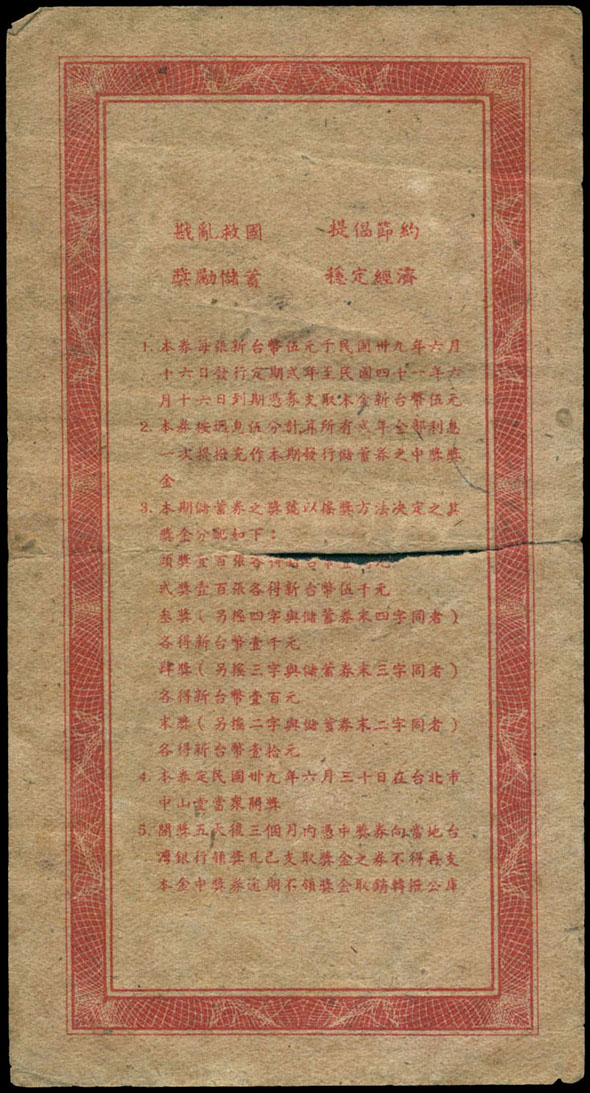 戡亂救國 提倡節約
獎勵儲蓄 穩定經濟
1. 本券每張新台幣伍元于民國卅九年六月
十六日發行定期弍年至民國四十一年六
月十六日到期憑券支取本金新台幣伍元
2. 本券按週息伍分計算所有弍年全部利息
一次提撥充作本期發行儲蓄券之中獎獎
金
3. 本期儲蓄券之獎號以搖獎方法決定之其
獎金分配如下：
頭獎壹百張各得新台幣壹元
弍獎壹百張各得新台幣伍千元
叁獎(另搖四字與儲蓄券末四字同者)
各得新台幣壹千元
肆獎(另搖三字與儲蓄券末三字同者)
各得新台幣壹百元
末獎(另搖二字與儲蓄券末二字同者)
各得新台幣壹拾元
4. 本券定民國卅九年六月三十日在台北市
中山堂當衆開獎
5. 開獎五天後三個月內憑中獎券向當地台
灣銀行領獎凡已支取獎金之券不得再支
本金中獎券逾期不領獎金取銷轉撥公庫